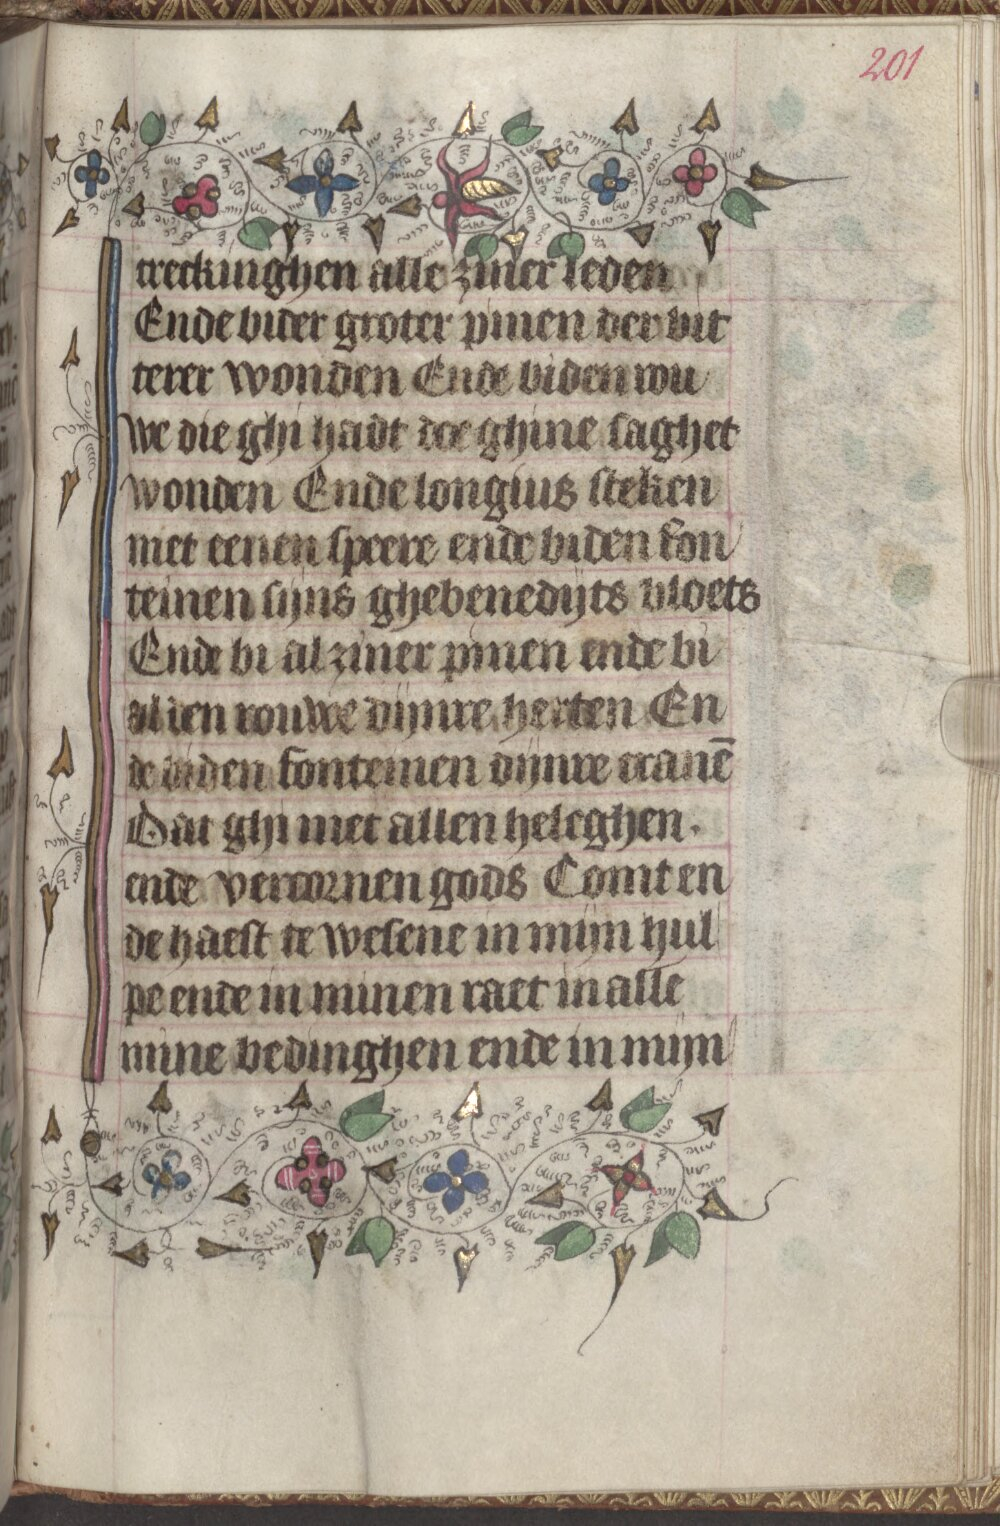 201
treckinghen alle ziner leden
Ende bider groter pinen der bit
terer wonden Ende biden rou
we die ghi hadt doe ghine saghet
wonden Ende longius steken
met eenen speere ende biden fon
teinen sijns ghebenedijts bloets
Ende bi al ziner pinen ende bi
al den rouwe dijnre herten En
de biden fonteinen dijnre tranē
Dat ghi met allen heleghen.
ende vercornen gods Comt en
de haest te wesene in mijn hul
pe ende in minen raet in alle
mine bedinghen ende in mijn